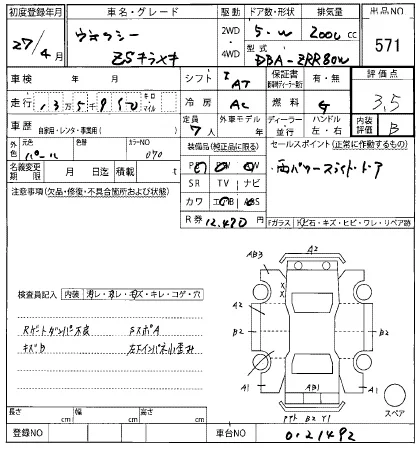 初度登録年月 車名・グレード 駆動 ドア数・形状 排気量 出品NO
27/4月 ヴォクシー 2WD・4WD 5・W 2000cc 571
ZSキラメキ 型式 DBA-ZRR80W
車検 年 月 シフト IAT 保証書 有・無 評価点
走行 13万5千950 キロ・マイル 冷房 AC 燃料 G 3.5
車歴 自家用・レンタ・事業用( ) 定員 7人 外車モデル 年 ディーラー 並行 ハンドル 左・右 内装評価 B
外色 元色 パール 色替 カラーNO 070 装備品(純正品に限る) セールスポイント(正常に作動するもの)
名義変更期限 月 日迄 積載 t PS PW 両パワースライドドア
注意事項(欠品・修復・不具合箇所および状態) SR TV ナビ
カワ ABS
R券 12,470円 Fガラス 飛石・キズ・ヒビ・ワレ・リペア跡
検査員記入 内装 汚レ・スレ・キズ・キレ・コゲ・穴
Rゲートダンパ不良 SスポA
キズB 左下インパネ小歪み
A2
AB3
X
X
A2
B2
B2
A1
A1
AB1
B2 Y1
スペア
長さ cm 幅 cm 高さ cm
登録NO 車台NO 0121492